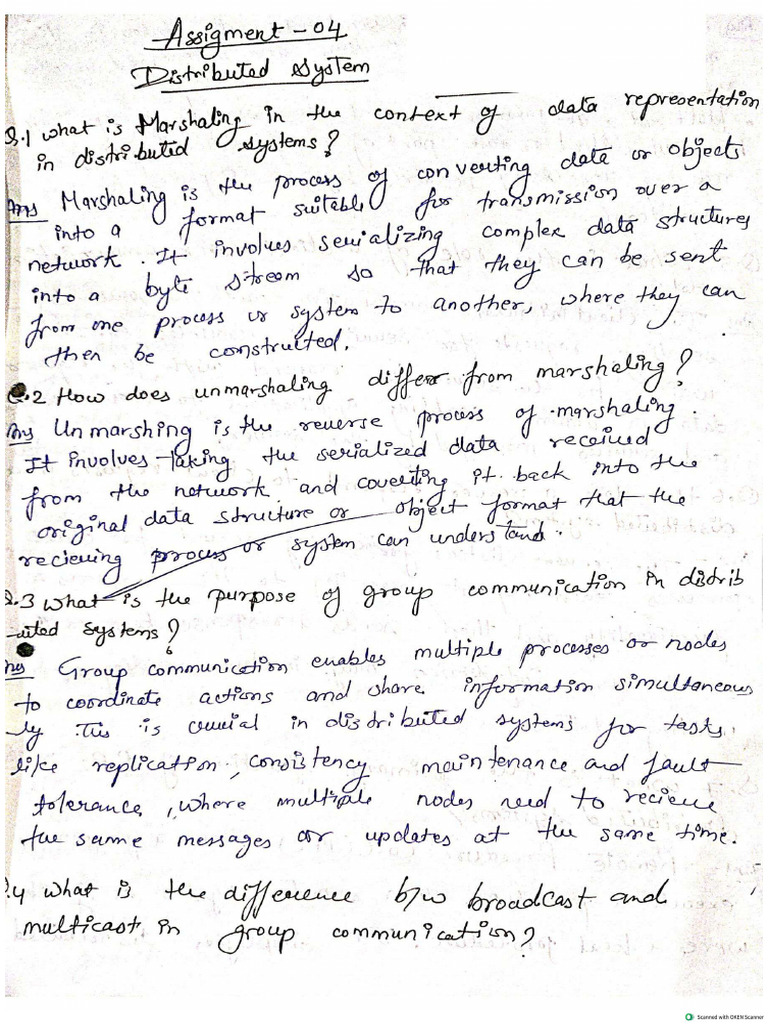 Assigment - 04
Distributed System
Q.1 what is Marshaling in the context of data representation
in distributed systems?
Ans Marshaling is the process of converting data or objects
into a format suitable for transmission over a
network. It involves serializing complex data structures
into a byte stream so that they can be sent
from one process or system to another, where they can
then be constructed.
Q.2 How does unmarshaling differ from marshaling?
Ans Unmarshing is the reverse process of marshaling.
It involves taking the serialized data received
from the network and coverting it back into the
original data structure or object format that the
recieving process or system can understand.
Q.3 What is the purpose of group communication in distrib
-uted systems?
Ans Group communication enables multiple processes or nodes
to coordinate actions and share information simultaneous
ly This is crucial in distributed systems for tasks
like replication, consistency maintenance and fault
tolerance, where multiple nodes need to recieve
the same messages or updates at the same time.
Q.4 What is the difference b/w broadcast and
multicast in group communication?
Scanned with OKEN Scanner